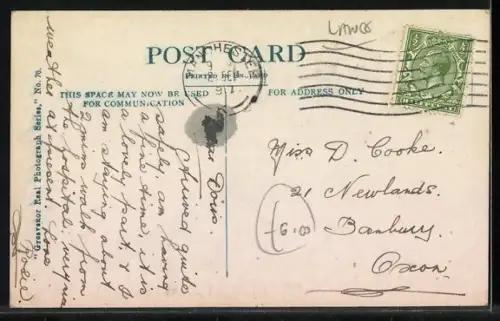 LANCS
POST CARD
PRINTED IN
THIS SPACE MAY NOW BE USED
FOR COMMUNICATION
FOR ADDRESS ONLY
CHESTER
"Grosvenor Real Photograph Series," No. 70.
Dear Doris.
Arrived quite
safely. am having
a fine time, it is
a lovely part, & I
am staying about
2 mins walk from
the hospital, very nice
weather at present. Love
Rosie
Miss D. Cooke.
21 Newlands.
Banbury.
Oxon.
6.B